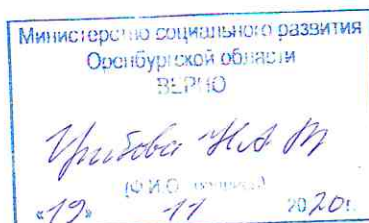 Министерство социального развития
Оренбургской области
ВЕРНО
(Ф.И.О. подпись)
«19» 11 2020г.